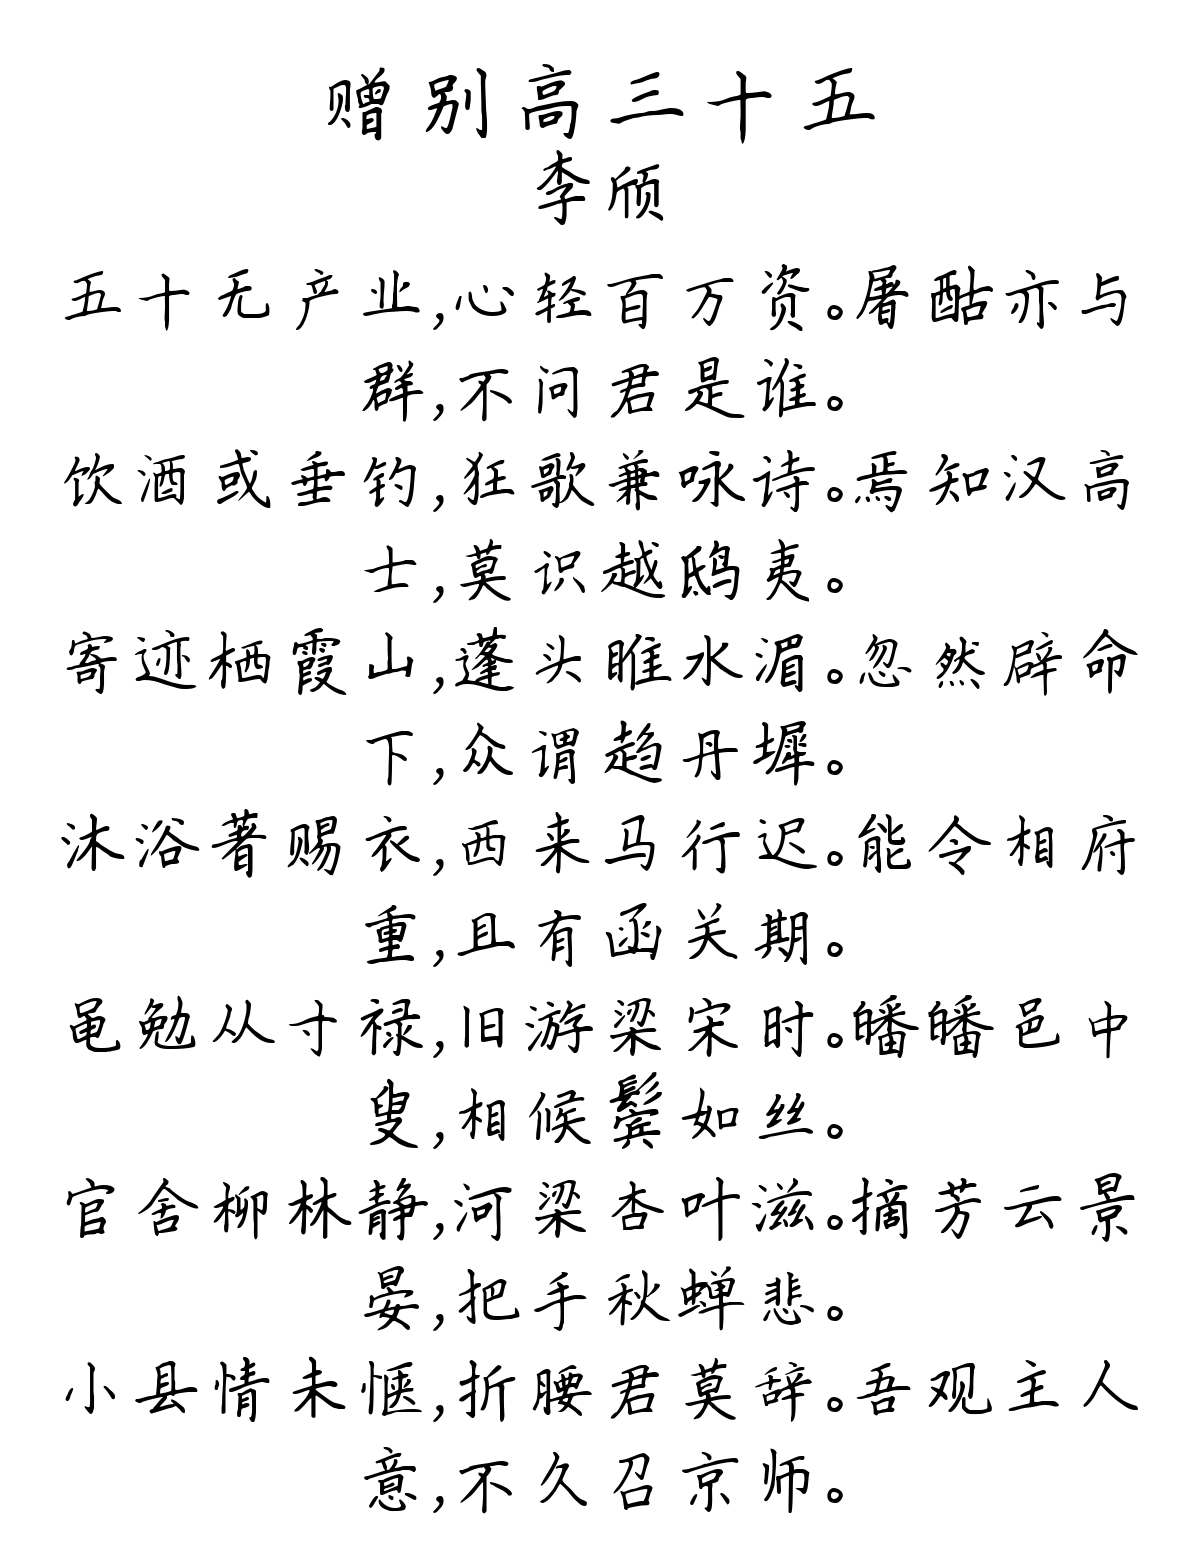 赠别高三十五
李颀
五十无产业,心轻百万资。屠酤亦与
群,不问君是谁。
饮酒或垂钓,狂歌兼咏诗。焉知汉高
士,莫识越鸱夷。
寄迹栖霞山,蓬头睢水湄。忽然辟命
下,众谓趋丹墀。
沐浴著赐衣,西来马行迟。能令相府
重,且有函关期。
黾勉从寸禄,旧游梁宋时。皤皤邑中
叟,相候鬓如丝。
官舍柳林静,河梁杏叶滋。摘芳云景
晏,把手秋蝉悲。
小县情未惬,折腰君莫辞。吾观主人
意,不久召京师。